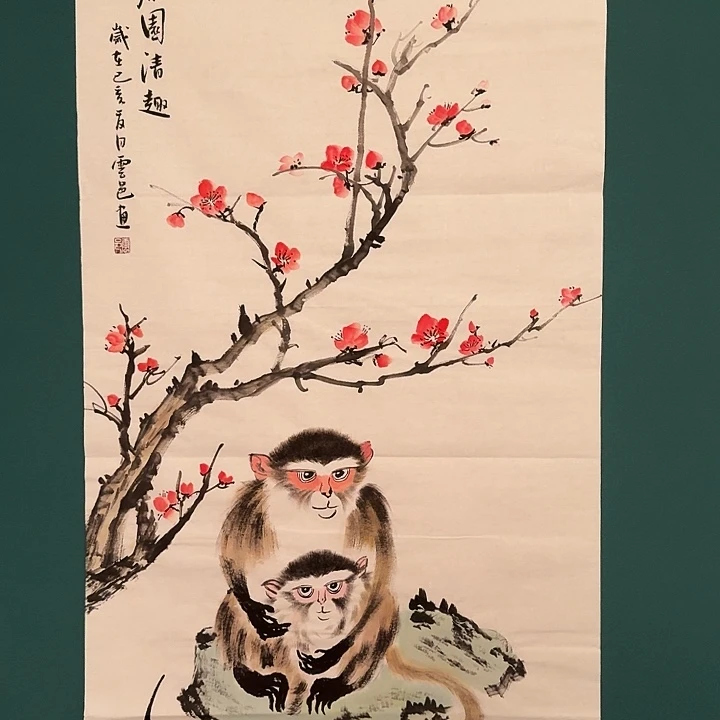 園清趣
歲在己亥夏月雲邑直